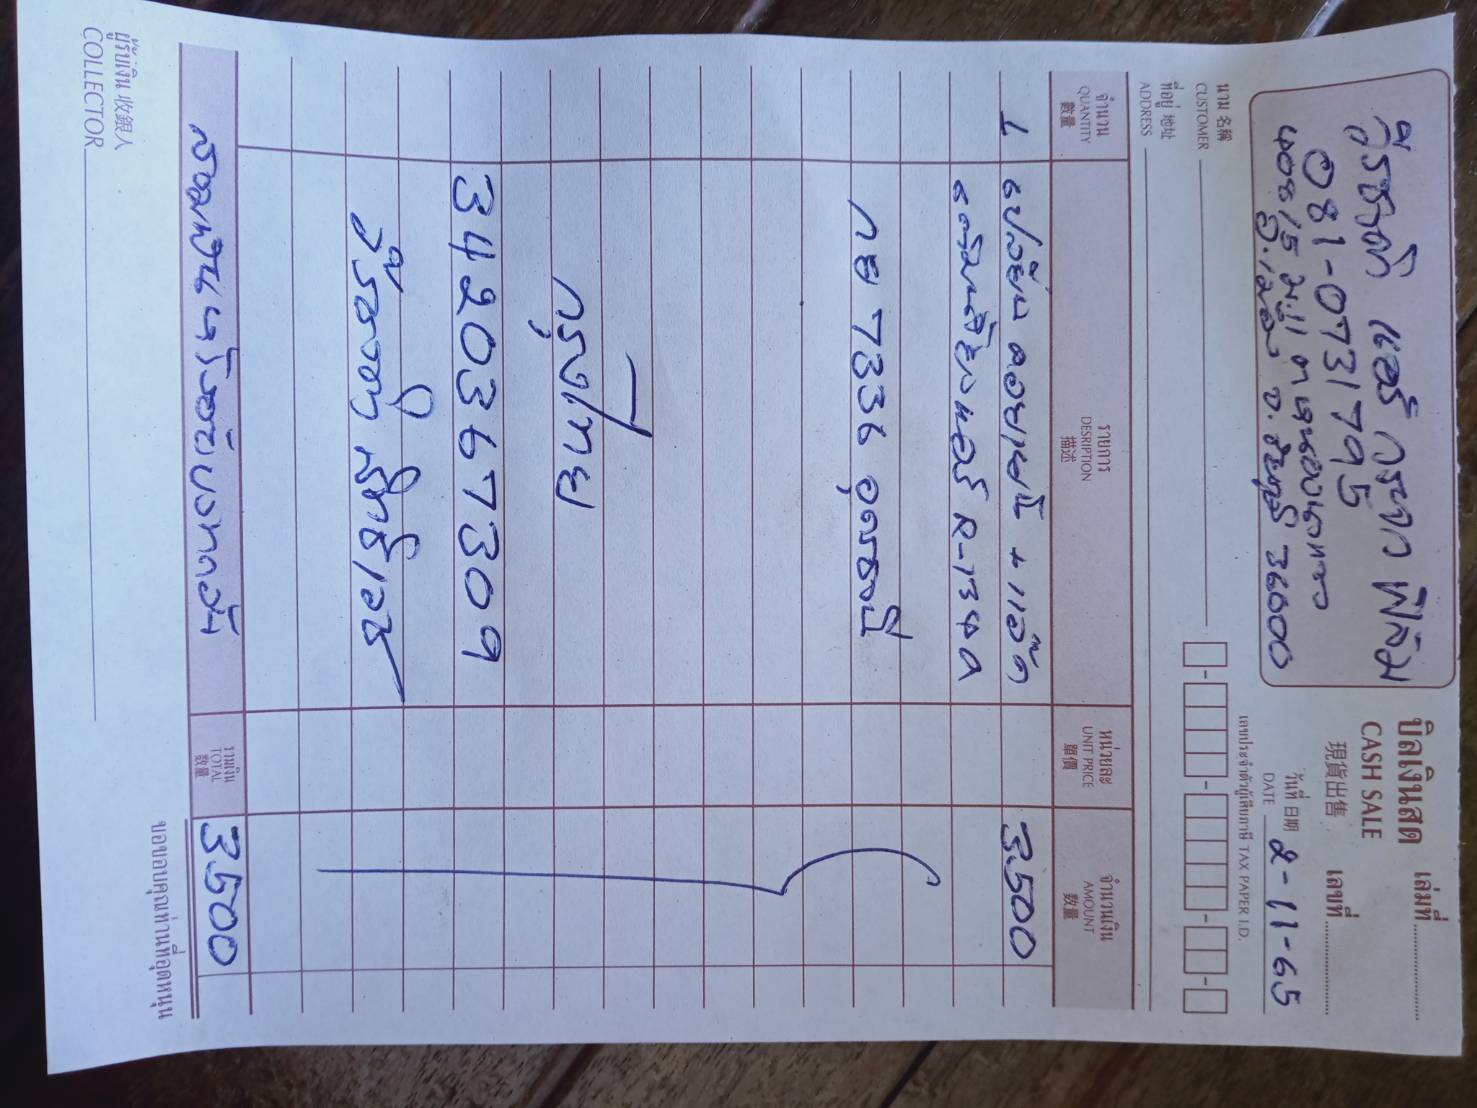 วีรชาติ แอร์ กระจก ฟิล์ม
081-0731795
408/5 ม.1 ต.หนองนาแซง
อ.เมือง จ.ชัยภูมิ 36000
บิลเงินสด
CASH SALE
現貨出售
เล่มที่
เลขที่
วันที่ 日期
DATE 2-11-65
นาม 名稱
CUSTOMER
เลขประจำตัวผู้เสียภาษี TAX PAPER I.D.
ที่อยู่ 地址
ADDRESS
จำนวน รายการ หน่วยละ จำนวนเงิน
QUANTITY DESRIPTION UNIT PRICE AMOUNT
數量 描述 單價 數量
1 เปลี่ยน คอยเย็น + แอ๊ค 3500
เติมน้ำยาแอร์ R-134a
กย 7336 อุดรธานี
กรุงไทย
3420367309
รวมเงิน 3500
TOTAL
數量
ผู้รับเงิน 收銀人
COLLECTOR
ขอขอบคุณท่านที่อุดหนุน